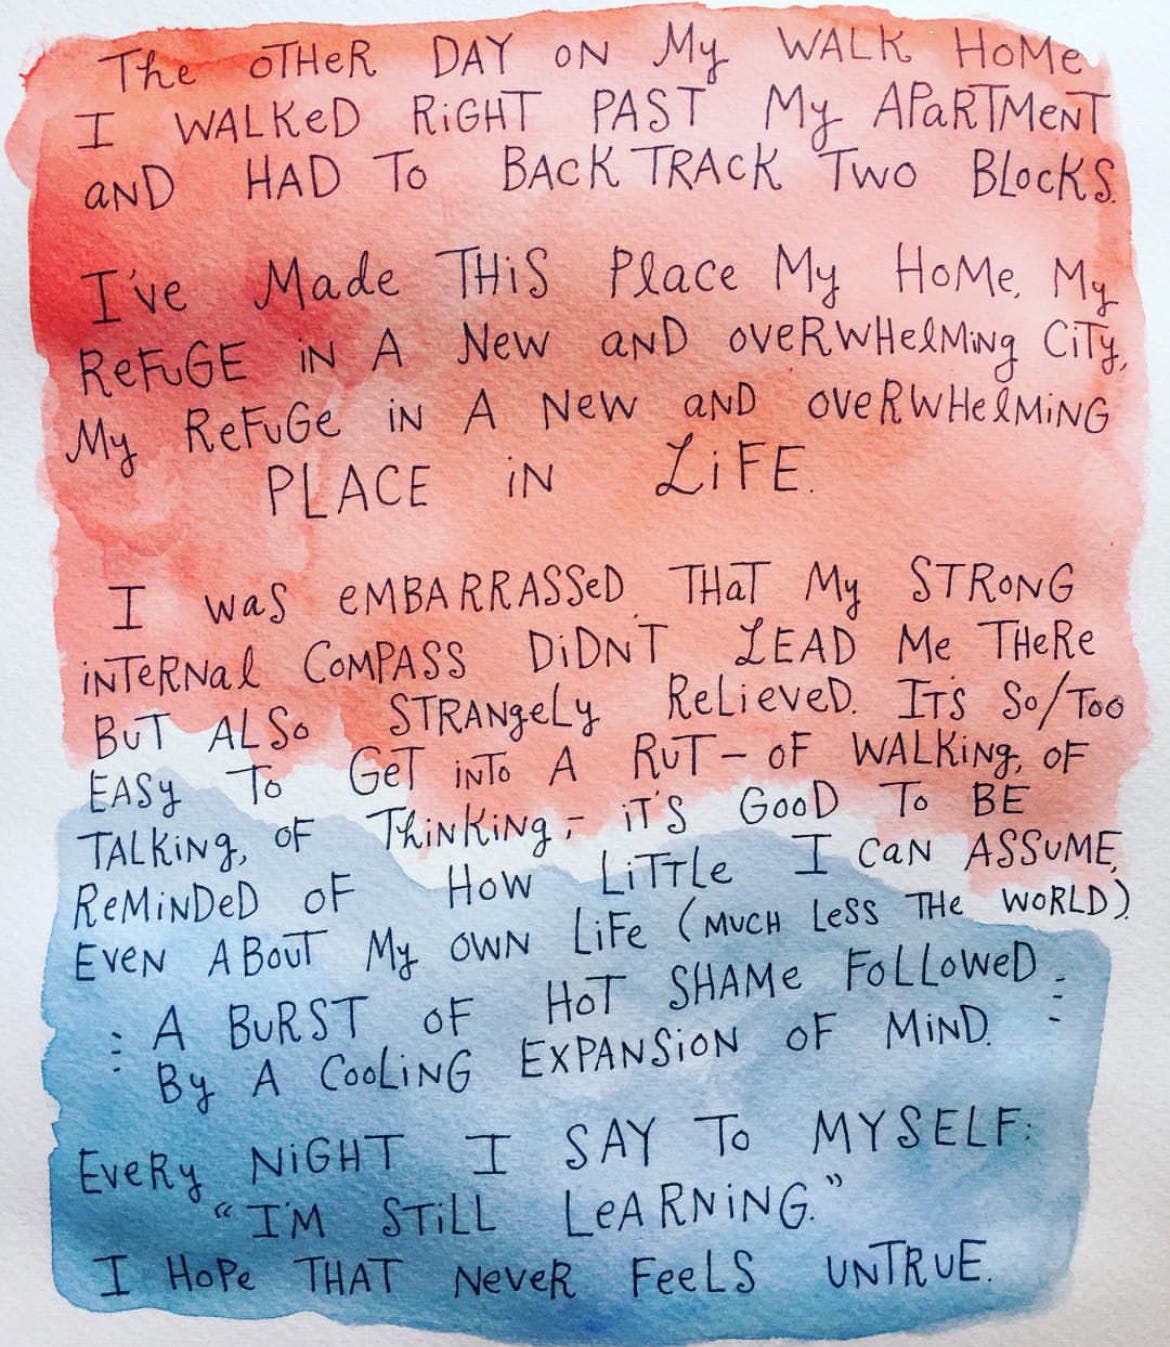 The OTHeR DAY ON My WALK HOMe
I WALKeD RiGHT PAST My APaRTMeNT
aND HAD To BACKTRACK Two BLocKS.
I've Made THiS Place My HoMe, My
ReFuGE iN A New aND oveRWHelMing CiTy,
My ReFuGe iN A New aND oveRWHelMiNG
PLACE iN LiFE.
I waS eMBARRASSeD THaT My STRoNG
iNTeRNal CoMPASS DiDN'T LEAD Me THeRe
BuT ALSo STRANgeLy ReLieveD. IT'S So/Too
EASy To GeT iNTo A RuT – oF WALKiNg, oF
TALKiNg, oF THiNKiNg, – iT'S GooD To BE
ReMiNDeD oF HoW LiTTLe I CaN ASSuME,
EveN ABouT My owN LiFe (MucH LeSS THe woRLD)
: A BuRST oF HoT SHAMe FoLLoweD :
: By A CooLiNG EXPANSioN oF MiND. -
EveRy NiGHT I SAY To MYSELF:
“I'M STiLL LeARNiNG.”
I HoPe THAT NeveR FeeLS uNTRuE.